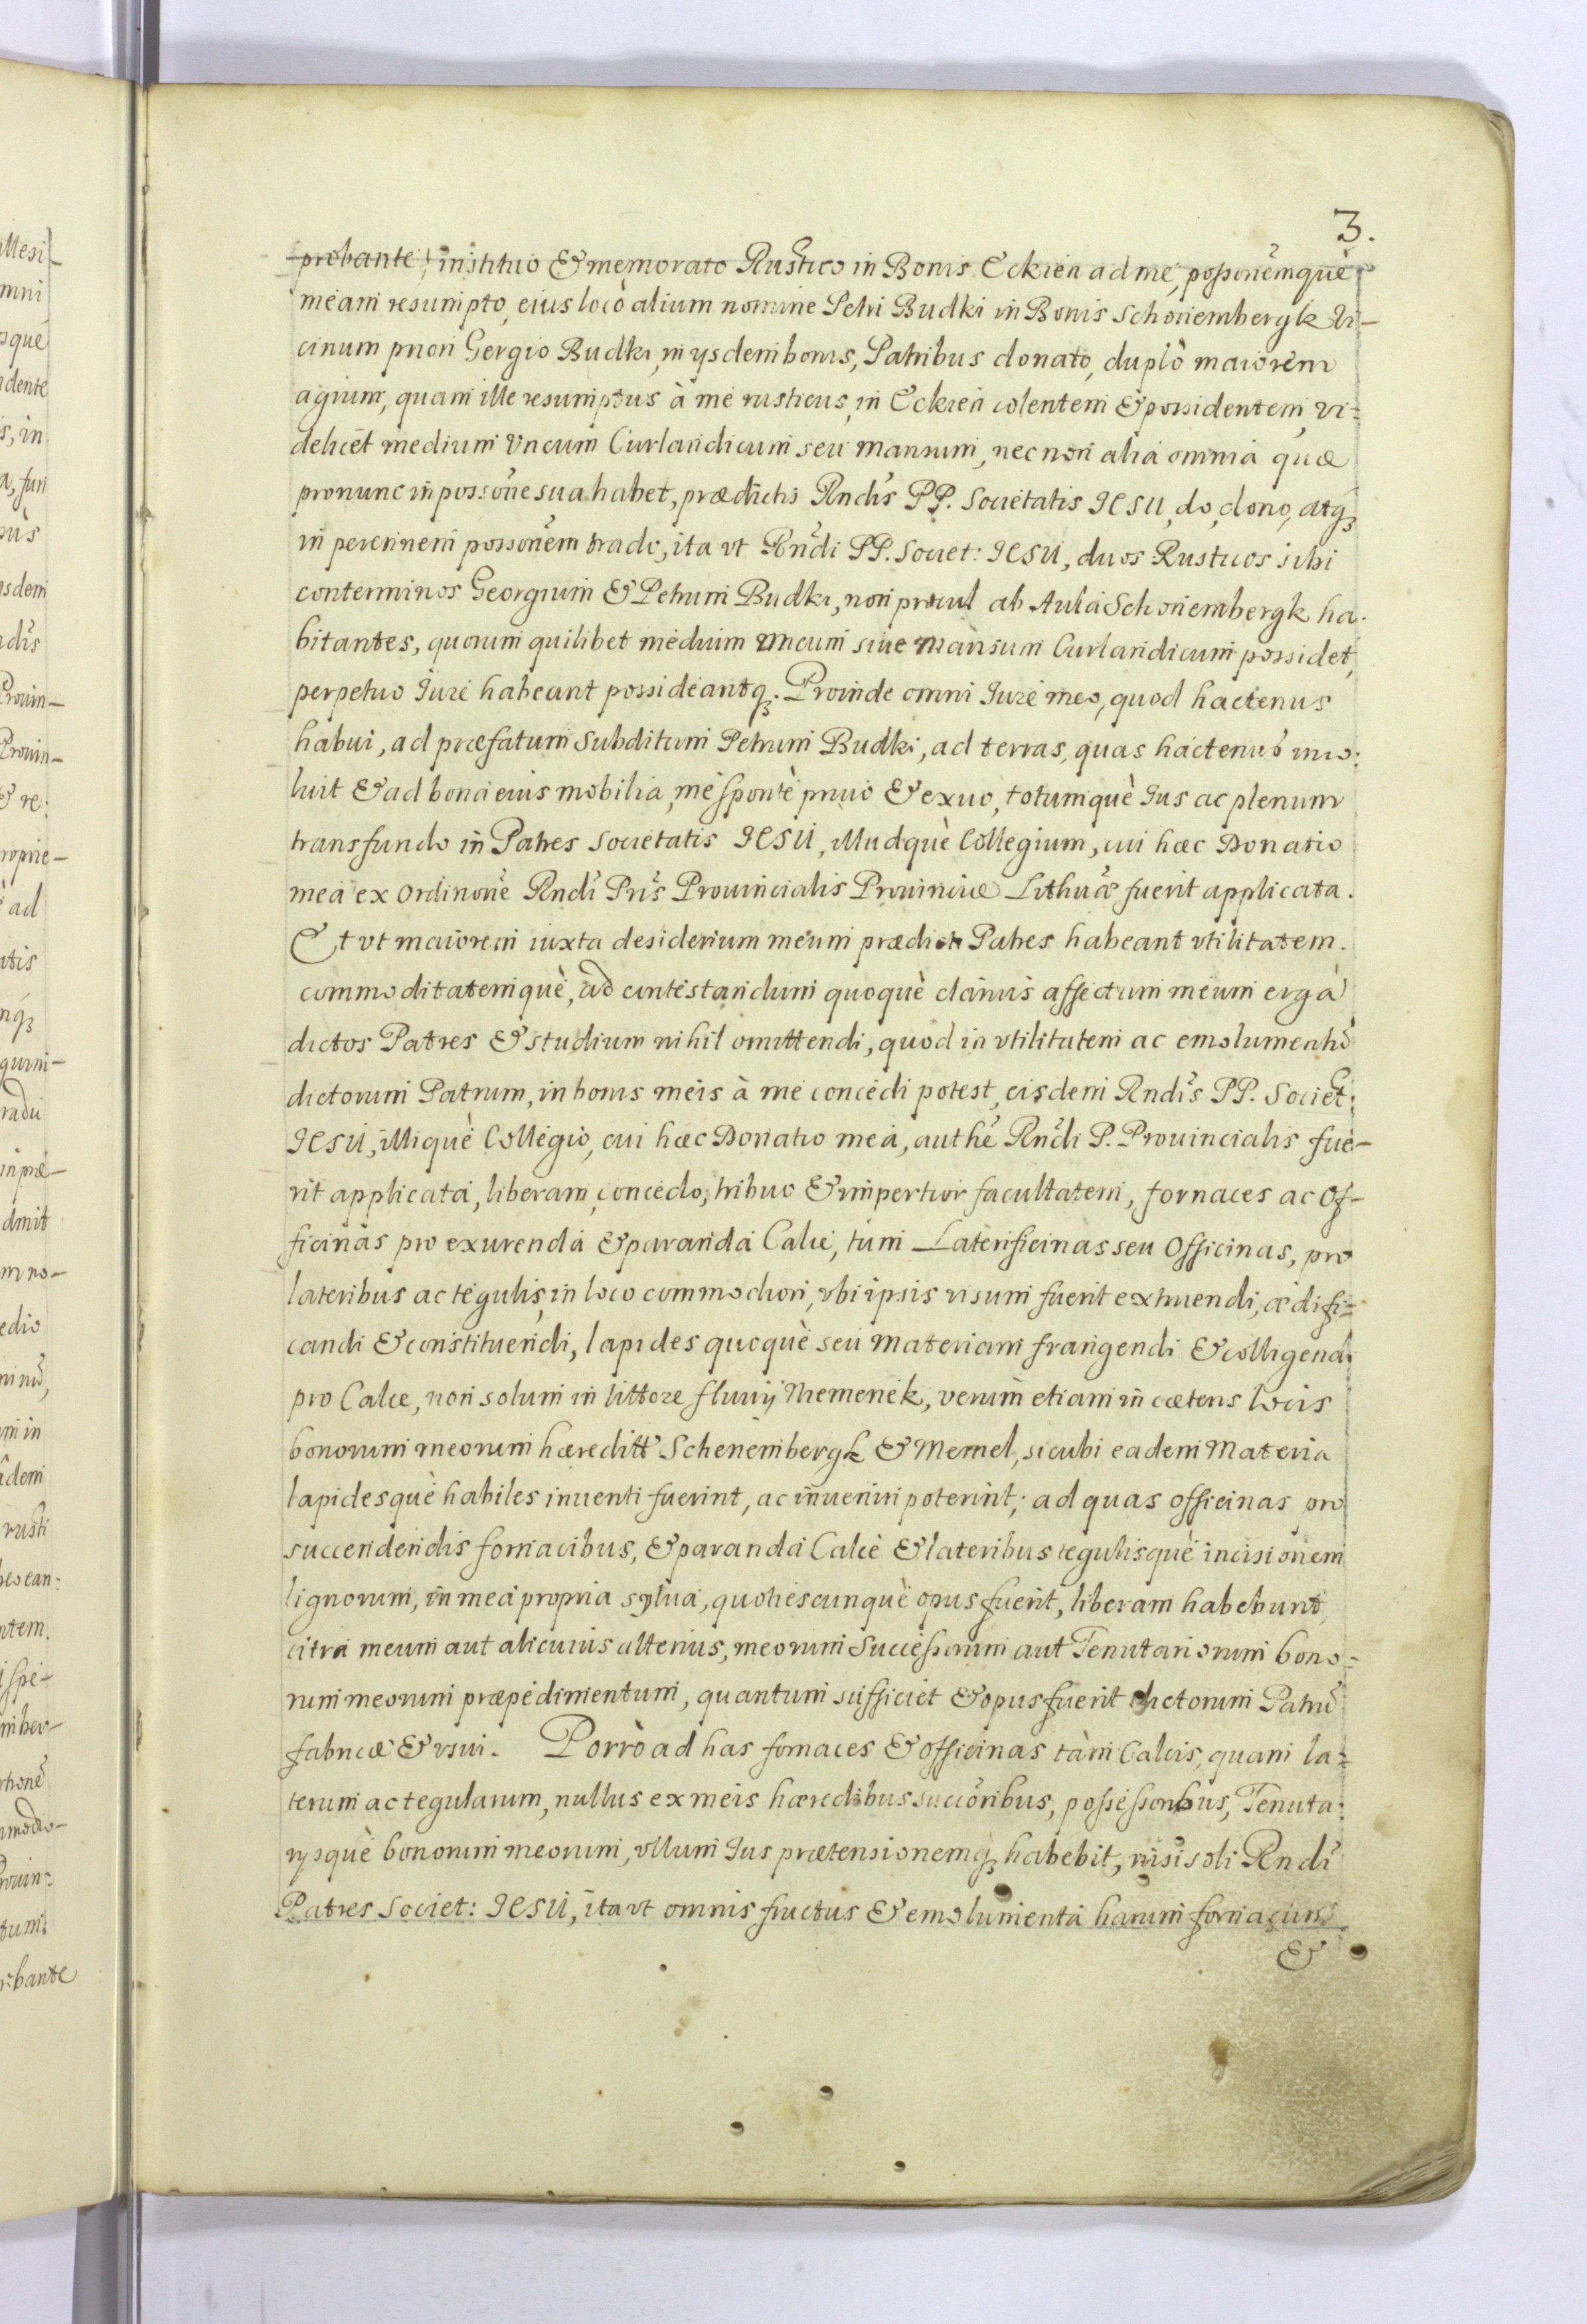 3.
probante, instituo & memorato Rustico in Bonis Eckien ad me, possoñemquè
meam resumpto, eius loco alium nomine Petri Budki in Bonis Schonembergk Vi-
cinum priori Gergio Budki, in ysdem bonis, Patribus donato, duplò maiorem
agrum, quam ille resumptus à me rusticus, in Eckien colentem & possidentem, vi-
delicèt medium Vncum Curlandicum seu mansum, nec non alia omnia quæ
pronunc in possoñe sua habet, prædictis Rndis PP. Societatis IESU, do, dono, atq;
in perennem possoñem trado, ita vt Rndi PP. Societ: IESU, duos Rusticos sibi
conterminos Georgium & Petrum Budki, non procul ab Aula Schonembergk ha-
bitantes, quorum quilibet medium uncum siue mansum Curlandicum possidet,
perpetuo Iure habeant possideantq;. Proinde omni Iure meo, quod hactenus
habui, ad præfatum subditum Petrum Budki, ad terras, quas hactenus inco:
luit & ad bona eius mobilia, me spontè priuo & exuo, totumquè Ius ac plenum
transfundo in Patres Societatis IESU, illudquè Collegium, cui hæc Donatio
mea ex Ordinoñe Rndi Pris Prouincialis Prouinciæ Lithuæ fuerit applicata.
Et vt maiorem iuxta desiderium meum prædicti Patres habeant vtilitatem.
commoditatemquè, ad contestandum quoquè clarius affectum meum erga
dictos Patres & studium nihil omittendi, quod in vtilitatem ac emolumentũ
dictorum Patrum, in bonis meis à me concedi potest, eisdem Rndis PP. Societ:
IESU, illiquè Collegio, cui hæc Donatio mea, authẽ Rndi P. Prouincialis fue-
rit applicata, liberam, concedo, tribuo & impertior facultatem, fornaces ac Of-
ficinas pro exurenda & paranda Calce, tum Laterificinas seu Officinas, pro
lateribus ac tegulis, in loco commodiori, vbi ipsis visum fuerit extruendi, ædifi-
candi & constituendi, lapides quoquè seu materiam frangendi & colligendi
pro Calce, non solum in littore fluuij Memenek, verum etiam in cæteris locis
bonorum meorum hæreditt Schenembergk & Memel, sicubi eadem Materia
lapidesquè habiles inuenti fuerint, ac inueniri poterint; ad quas officinas pro
succendendis fornacibus, & paranda Calcè & lateribus tegulisquè incisionem
lignorum, in mea propria sylua, quotiescunquè opus fuerit, liberam habebunt,
citra meum aut alicuius alterius, meorum Successorum aut Tenutariorum bono-
rum meorum præpedimentum, quantum sufficiet & opus fuerit dictorum Patrũ
fabricæ & vsui. Porrò ad has fornaces & officinas tàm Calcis, quam la-
terum ac tegularum, nullus ex meis hæredibus succoribus, possessoribus, Tenuta:
rysquè bonorum meorum, vllum Ius prætensionemq; habebit, nisi soli Rndi
Patres Societ: IESU, ita vt omnis fructus & emolumenta harum fornacium
&